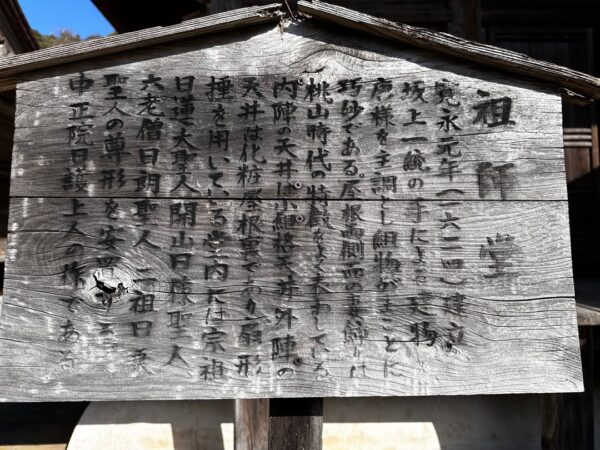 祖師堂
寛永元年(一六二四)建立
坂上一統の手による建物
唐様を主調とし組物がまことに
巧妙である屋根両側面の妻飾は
桃山時代の特徴をよく表わしている
内陣の天井は小組格天井外陣の
天井は化粧屋根裏であり扇形
捶を用いている堂内には宗祖
日蓮大聖人開山日隆聖人
六老僧日朗聖人二祖日
聖人の尊形を安置する
中正院日護上人の作である